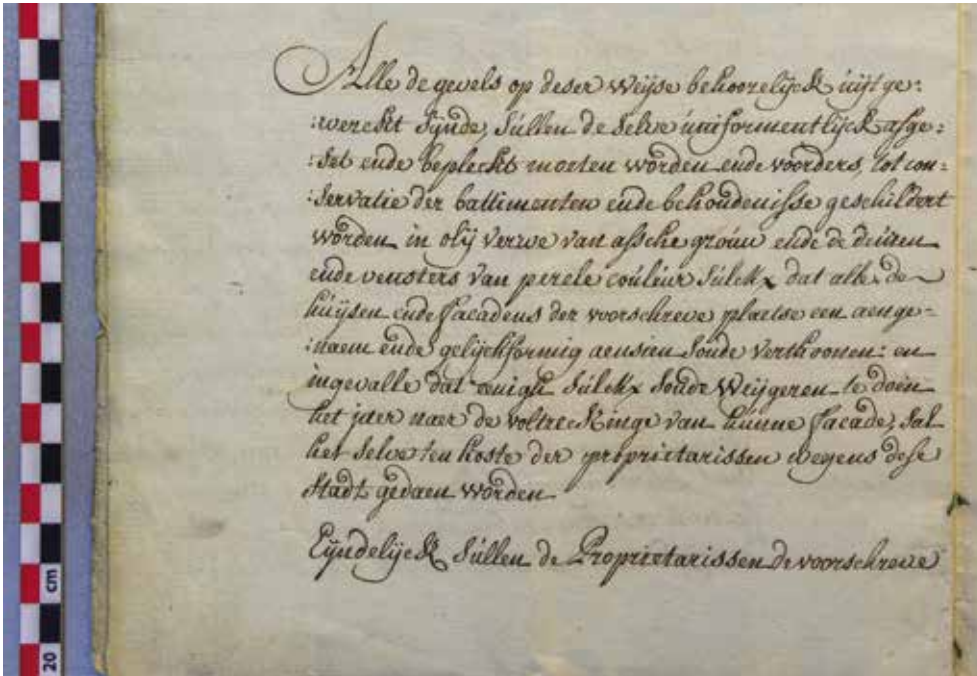 Alle de gevels op deser weijse behoorelijck uijtge:
:werckt sijnde, sullen de selve uniformentlijck afge:
:set ende bepleckt moeten worden ende voorders, tot con:
:servatie der battimenten ende behoudenisse geschildert
worden in olij verwe van assche grouw ende de deuren
ende vensters van perele couleur sulckx dat alle de
huijsen ende facadens der voorschreve plaetse een aenge:
:naem ende gelijckformig aensien soude verthoonen: en
ingevalle dat eenigh sulckx soude weijgeren te doen
het jaer naer de voltreckinge van hunne facade, sal
het selve ten koste der proprietarissen wegens dese
stadt gedaen worden
Eijndelijck sullen de Proprietarissen de voorschreve
cm
20